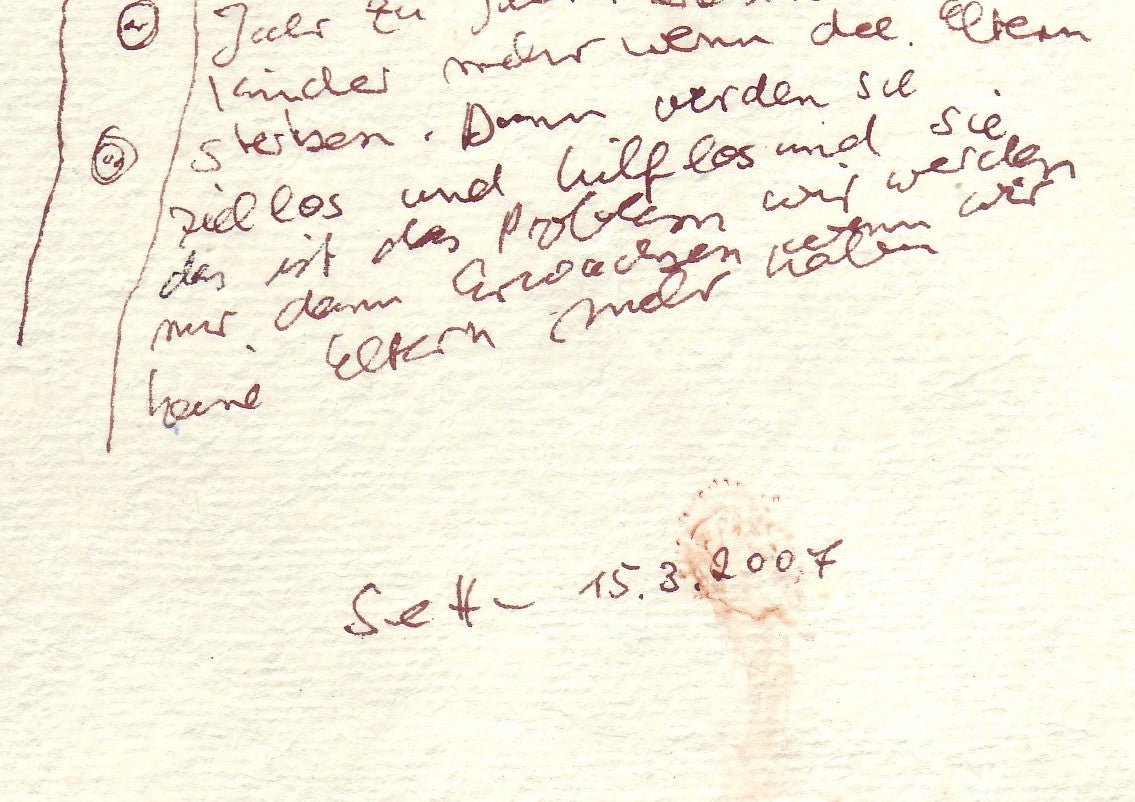 Jahr zu Jahr
Kinder mehr wenn die Eltern
sterben. Dann werden sie
ziellos und hilflos und sie
das ist das Problem wir werden
nur dann Erwachsen wenn wir
keine Eltern mehr haben
15.3.2007